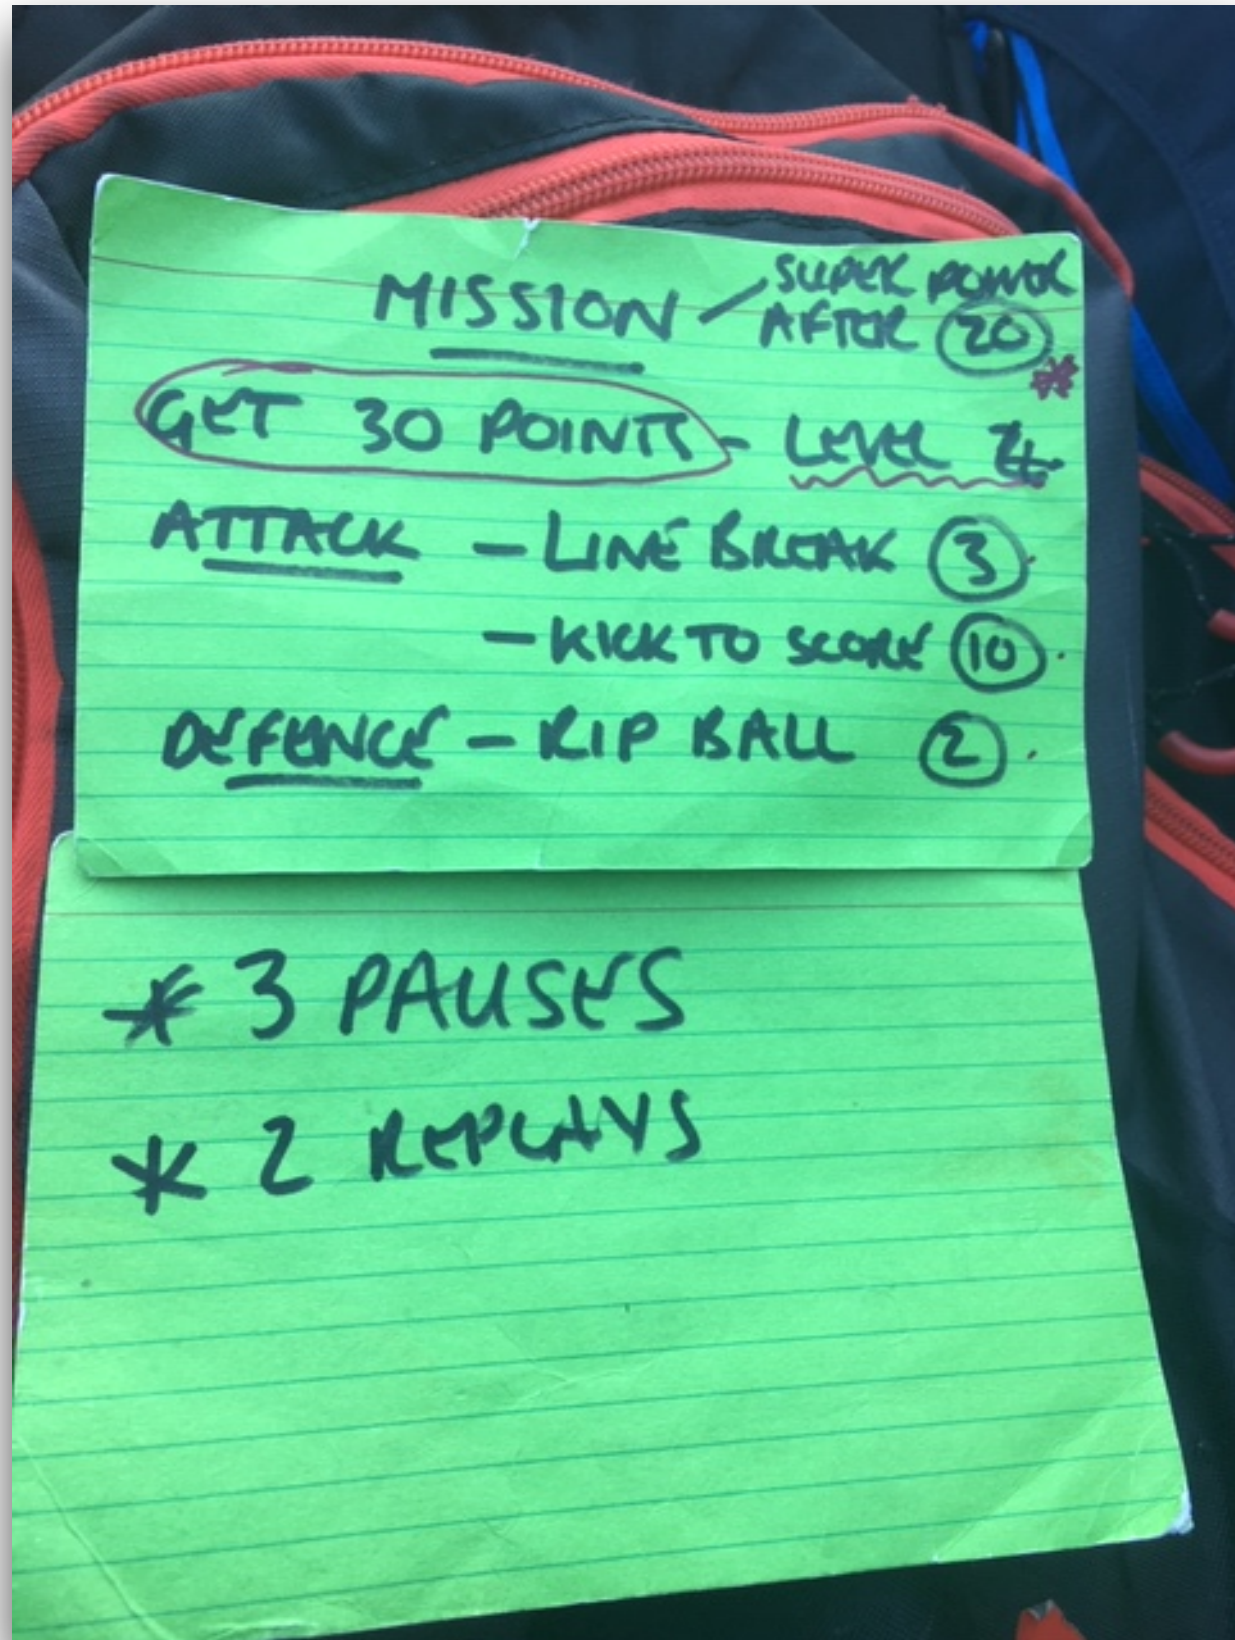 MISSION - SUPER POWER
AFTER 20
*
GET 30 POINTS - LEVEL
ATTACK - LINE BREAK 3
- KICK TO SCORE 10
DEFENCE - RIP BALL 2
* 3 PAUSES
* 2 REPLAYS